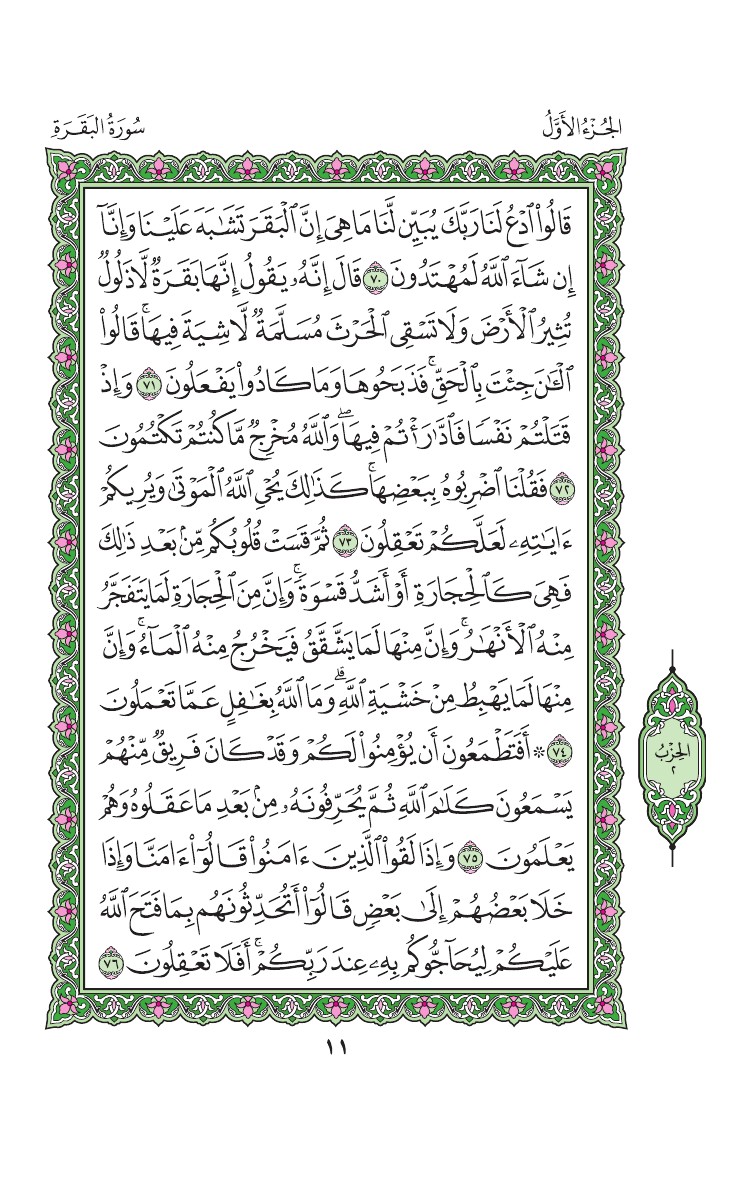 الجُزْءُ الأَوَّلُ
سُورَةُ البَقَرَةِ
قَالُواْ ٱدۡعُ لَنَا رَبَّكَ يُبَيِّن لَّنَا مَا هِيَ إِنَّ ٱلۡبَقَرَ تَشَٰبَهَ عَلَيۡنَا وَإِنَّآ
إِن شَآءَ ٱللَّهُ لَمُهۡتَدُونَ ٧٠ قَالَ إِنَّهُۥ يَقُولُ إِنَّهَا بَقَرَةٞ لَّا ذَلُولٞ
تُثِيرُ ٱلۡأَرۡضَ وَلَا تَسۡقِي ٱلۡحَرۡثَ مُسَلَّمَةٞ لَّا شِيَةَ فِيهَاۚ قَالُواْ
ٱلۡـَٰٔنَ جِئۡتَ بِٱلۡحَقِّۚ فَذَبَحُوهَا وَمَا كَادُواْ يَفۡعَلُونَ ٧١ وَإِذۡ
قَتَلۡتُمۡ نَفۡسٗا فَٱدَّٰرَٰٔتُمۡ فِيهَاۖ وَٱللَّهُ مُخۡرِجٞ مَّا كُنتُمۡ تَكۡتُمُونَ
٧٢ فَقُلۡنَا ٱضۡرِبُوهُ بِبَعۡضِهَاۚ كَذَٰلِكَ يُحۡيِ ٱللَّهُ ٱلۡمَوۡتَىٰ وَيُرِيكُمۡ
ءَايَٰتِهِۦ لَعَلَّكُمۡ تَعۡقِلُونَ ٧٣ ثُمَّ قَسَتۡ قُلُوبُكُم مِّنۢ بَعۡدِ ذَٰلِكَ
فَهِيَ كَٱلۡحِجَارَةِ أَوۡ أَشَدُّ قَسۡوَةٗۚ وَإِنَّ مِنَ ٱلۡحِجَارَةِ لَمَا يَتَفَجَّرُ
مِنۡهُ ٱلۡأَنۡهَٰرُۚ وَإِنَّ مِنۡهَا لَمَا يَشَّقَّقُ فَيَخۡرُجُ مِنۡهُ ٱلۡمَآءُۚ وَإِنَّ
مِنۡهَا لَمَا يَهۡبِطُ مِنۡ خَشۡيَةِ ٱللَّهِۗ وَمَا ٱللَّهُ بِغَٰفِلٍ عَمَّا تَعۡمَلُونَ
٧٤ ۞ أَفَتَطۡمَعُونَ أَن يُؤۡمِنُواْ لَكُمۡ وَقَدۡ كَانَ فَرِيقٞ مِّنۡهُمۡ
يَسۡمَعُونَ كَلَٰمَ ٱللَّهِ ثُمَّ يُحَرِّفُونَهُۥ مِنۢ بَعۡدِ مَا عَقَلُوهُ وَهُمۡ
يَعۡلَمُونَ ٧٥ وَإِذَا لَقُواْ ٱلَّذِينَ ءَامَنُواْ قَالُوٓاْ ءَامَنَّا وَإِذَا
خَلَا بَعۡضُهُمۡ إِلَىٰ بَعۡضٖ قَالُوٓاْ أَتُحَدِّثُونَهُم بِمَا فَتَحَ ٱللَّهُ
عَلَيۡكُمۡ لِيُحَآجُّوكُم بِهِۦ عِندَ رَبِّكُمۡۚ أَفَلَا تَعۡقِلُونَ ٧٦
الحِزْبُ
٢
١١